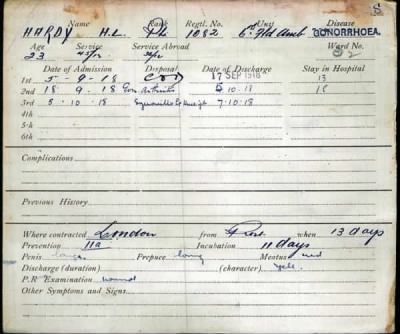 Name Rank Regtl. No. Unit Disease
HARDY H.L. Pte 1082 6th Fld Amb GONORRHOEA.
Age Service Service Abroad Ward No.
23 2
Date of Admission Disposal Date of Discharge Stay in Hospital
1st 5-9-18 17 SEP 1918 13
2nd 18 9-18 Gon. Arthritis 5 10-18 18
3rd 5-10-18 7-10-18
4th
5th
6th
Complications
Previous History
Where contracted London from Prost. when 13 days
Prevention 11a Incubation 11 days
Penis large Prepuce long Meatus red
Discharge (duration) (character) Yell.
P.R Examination normal
Other Symptoms and Signs